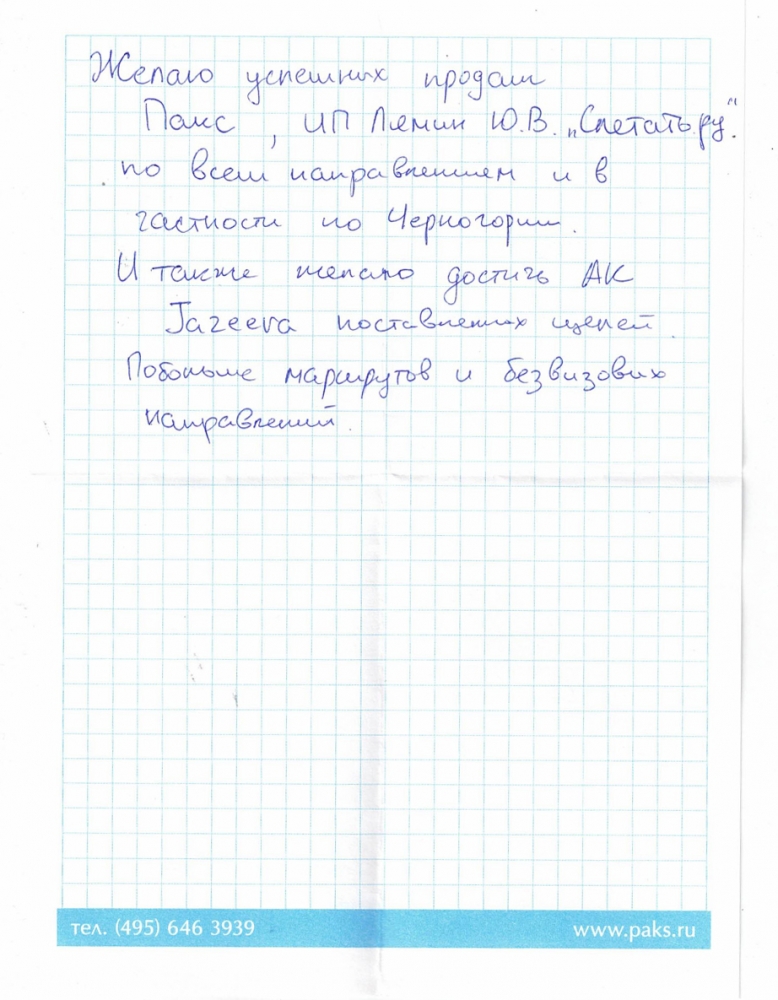 Желаю успешных продаж
Пакс, ИП Лямин Ю.В. "Слетать.ру".
по всем направлением и в
частности по Черногории.
И также желаю достичь АК
Jazeera поставленных целей.
Побольше маршрутов и безвизових
направлений.
тел. (495) 646 3939
www.paks.ru